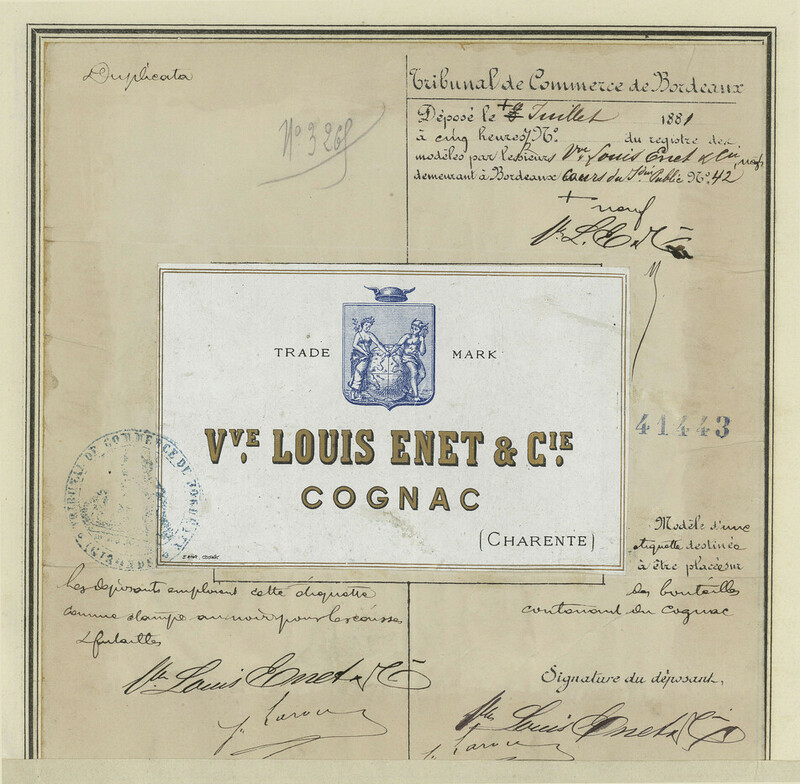 Duplicata
Nº 3268
Tribunal de Commerce de Bordeaux
Déposé le Juillet 1881
à cinq heures, Nº du registre des
modèles par les sieurs Vve Louis Enet & Cie
demeurant à Bordeaux cours du Jdin Public Nº 42
+ neuf
Ve L. Enet & Cie
TRADE MARK
VVE. LOUIS ENET & CIE.
COGNAC
(CHARENTE)
41443
TRIBUNAL DE COMMERCE DE BORDEAUX
Modèle d'une
étiquette destinée
à être placée sur
des bouteilles
contenant du cognac
Les déposants emploient cette étiquette
comme estampe au noir pour les caisses
& futailles
Vve Louis Enet & Cie
Signature du déposant,
Vve Louis Enet & Cie